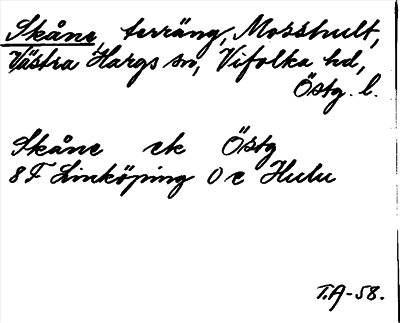 Skåne, terräng, Mosshult,
Västra Hargs sn, Vifolka hd,
Östg. l.
Skåne ek Östg
8F Linköping 0e Hulu
T.A-58.